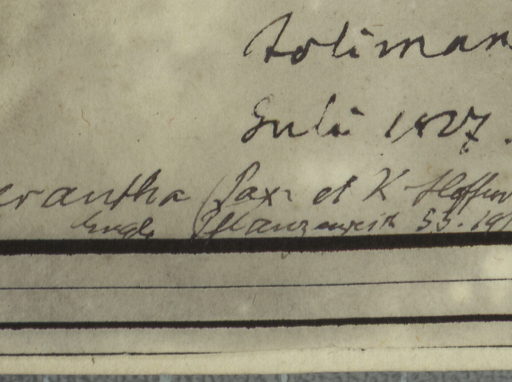 Toliman
Juli 1827.
erantha (Pax et K Hoffm
Engl. Pflanzenreich 53. 19